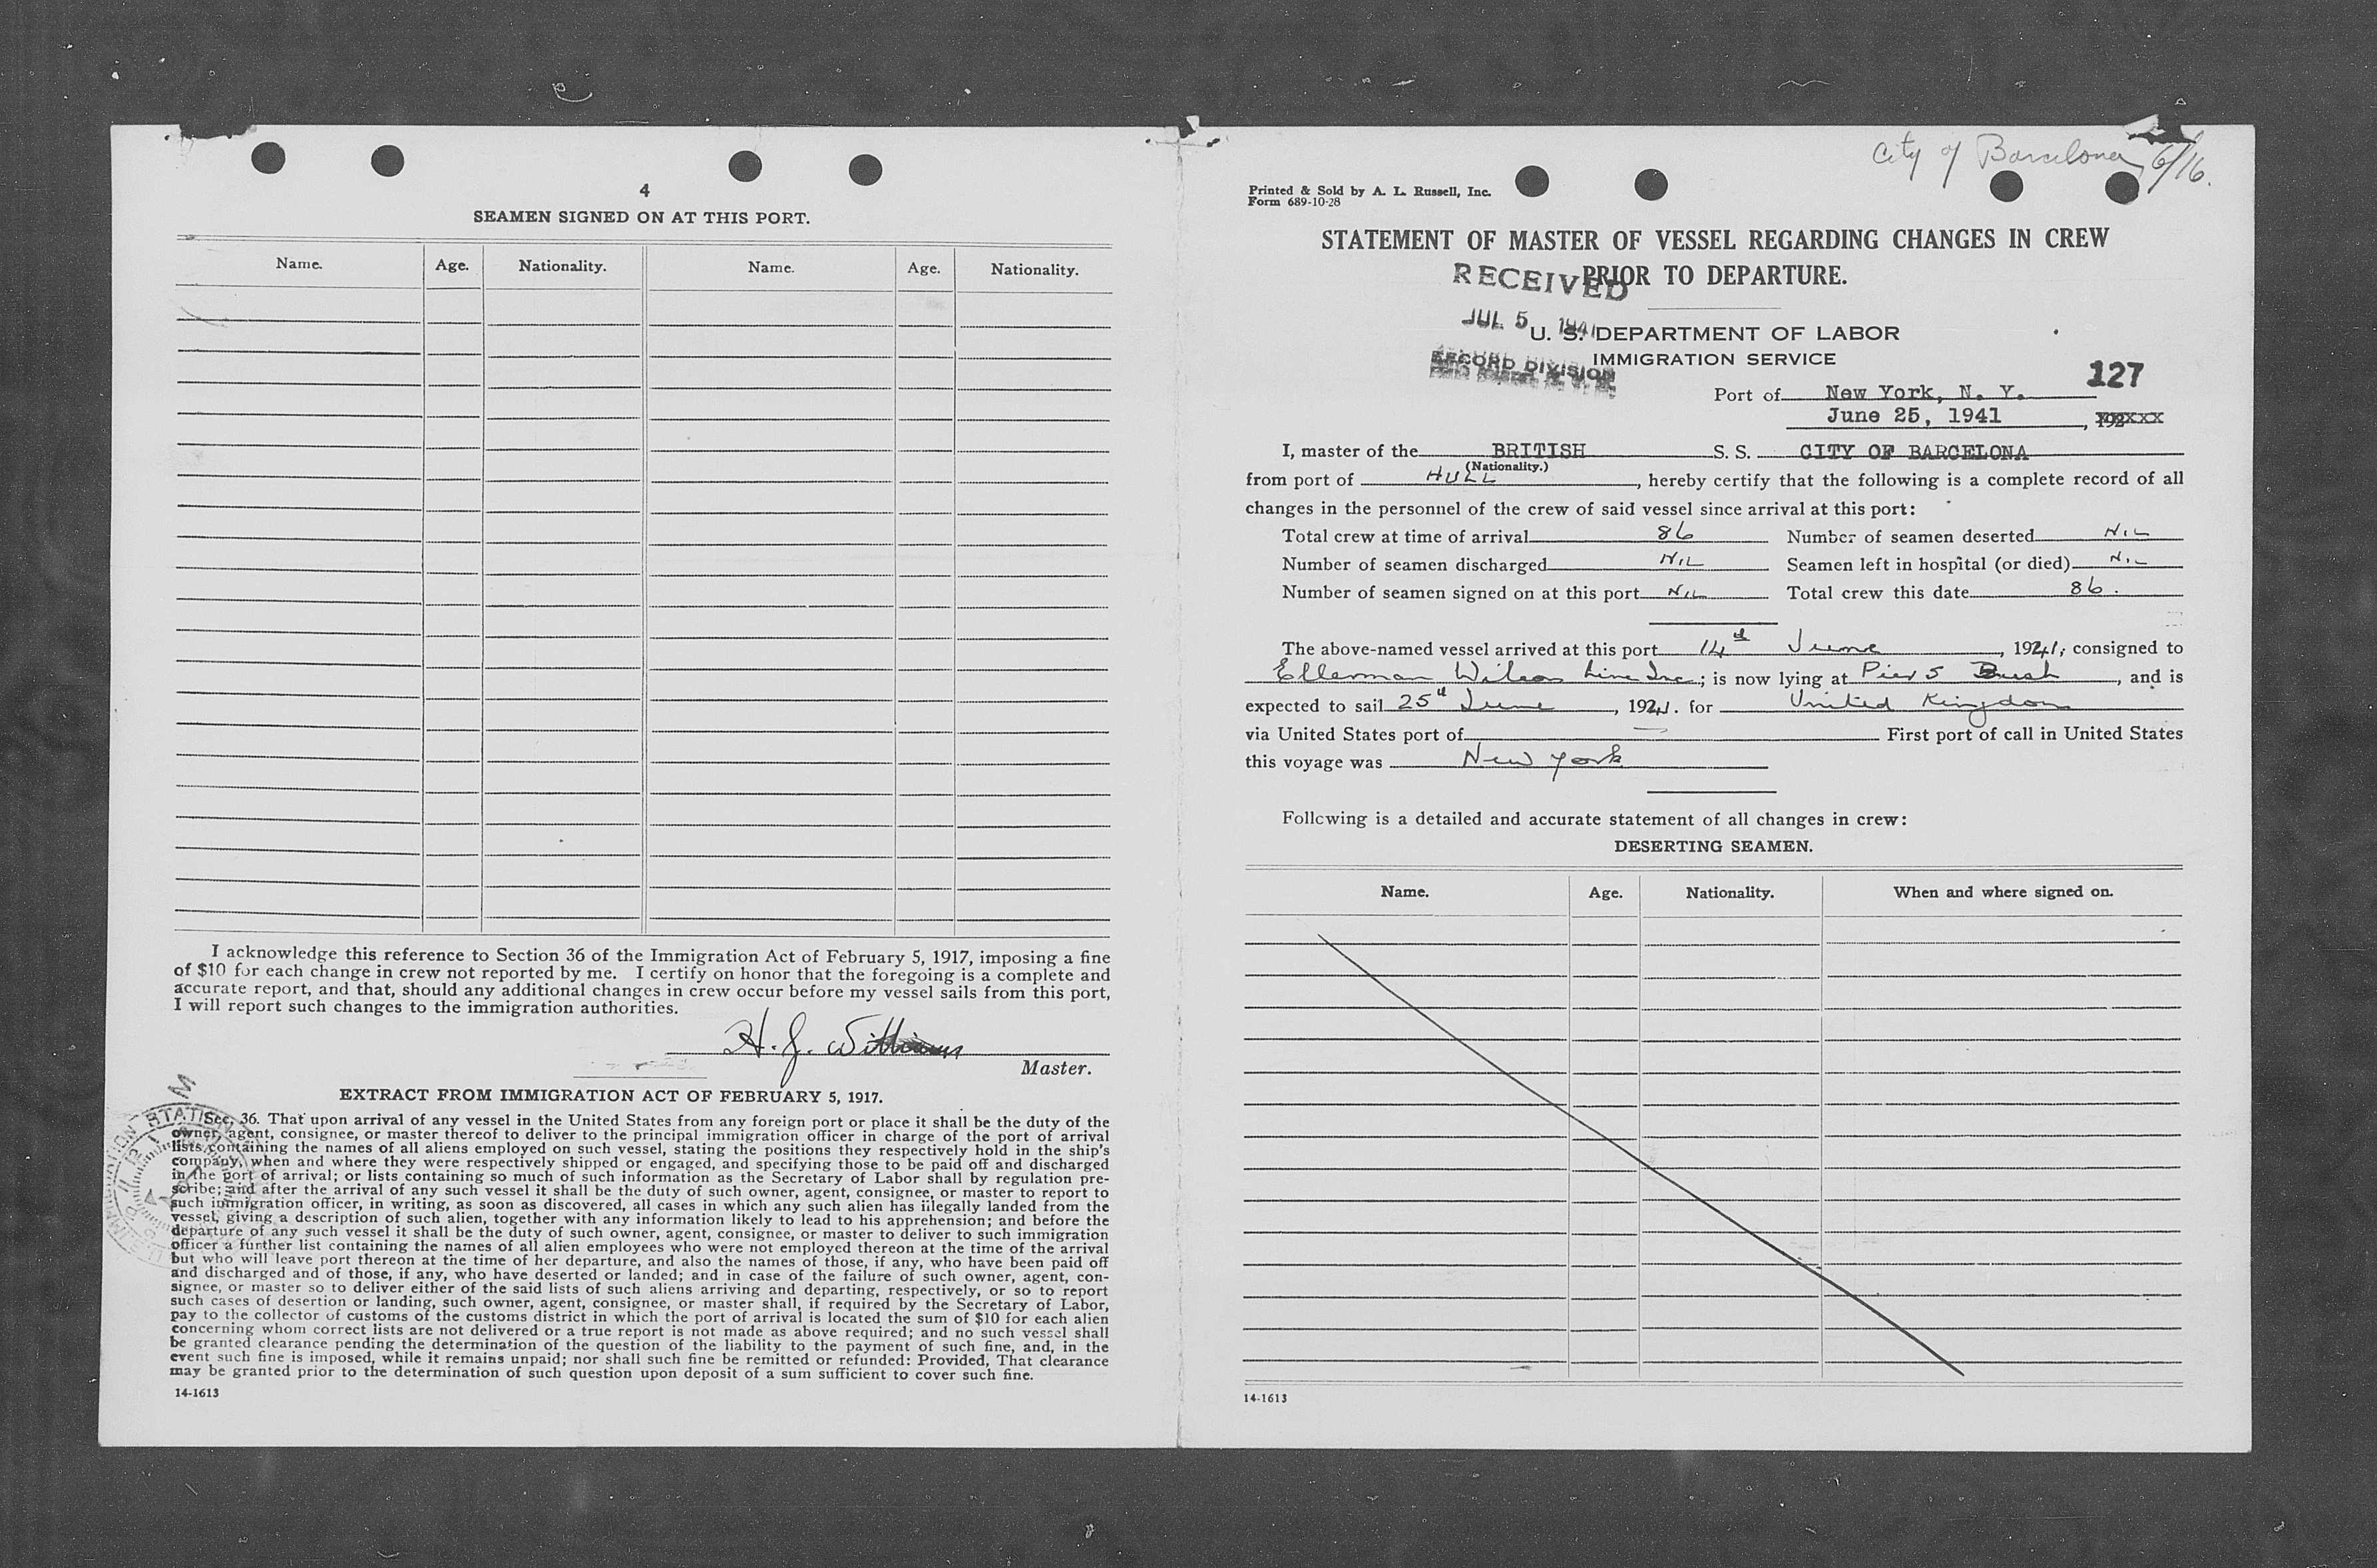 4
SEAMEN SIGNED ON AT THIS PORT.
Name. Age. Nationality. Name. Age. Nationality.
I acknowledge this reference to Section 36 of the Immigration Act of February 5, 1917, imposing a fine
of $10 for each change in crew not reported by me. I certify on honor that the foregoing is a complete and
accurate report, and that, should any additional changes in crew occur before my vessel sails from this port,
I will report such changes to the immigration authorities.
H. J. Williams
Master.
EXTRACT FROM IMMIGRATION ACT OF FEBRUARY 5, 1917.
Sec. 36. That upon arrival of any vessel in the United States from any foreign port or place it shall be the duty of the
owner, agent, consignee, or master thereof to deliver to the principal immigration officer in charge of the port of arrival
lists containing the names of all aliens employed on such vessel, stating the positions they respectively hold in the ship's
company, when and where they were respectively shipped or engaged, and specifying those to be paid off and discharged
in the port of arrival; or lists containing so much of such information as the Secretary of Labor shall by regulation pre-
scribe; and after the arrival of any such vessel it shall be the duty of such owner, agent, consignee, or master to report to
such immigration officer, in writing, as soon as discovered, all cases in which any such alien has illegally landed from the
vessel, giving a description of such alien, together with any information likely to lead to his apprehension; and before the
departure of any such vessel it shall be the duty of such owner, agent, consignee, or master to deliver to such immigration
officer a further list containing the names of all alien employees who were not employed thereon at the time of the arrival
but who will leave port thereon at the time of her departure, and also the names of those, if any, who have been paid off
and discharged and of those, if any, who have deserted or landed; and in case of the failure of such owner, agent, con-
signee, or master so to deliver either of the said lists of such aliens arriving and departing, respectively, or so to report
such cases of desertion or landing, such owner, agent, consignee, or master shall, if required by the Secretary of Labor,
pay to the collector of customs of the customs district in which the port of arrival is located the sum of $10 for each alien
concerning whom correct lists are not delivered or a true report is not made as above required; and no such vessel shall
be granted clearance pending the determination of the question of the liability to the payment of such fine, and, in the
event such fine is imposed, while it remains unpaid; nor shall such fine be remitted or refunded: Provided, That clearance
may be granted prior to the determination of such question upon deposit of a sum sufficient to cover such fine.
14-1613
City of Barcelona 6/16.
Printed & Sold by A. L. Russell, Inc.
Form 689-10-28
STATEMENT OF MASTER OF VESSEL REGARDING CHANGES IN CREW
PRIOR TO DEPARTURE.
RECEIVED
JUL 5 1941
U. S. DEPARTMENT OF LABOR
RECORD DIVISION
IMMIGRATION SERVICE
127
Port of New York, N. Y.
June 25, 1941, 192
I, master of the BRITISH S. S. CITY OF BARCELONA
(Nationality.)
from port of HULL, hereby certify that the following is a complete record of all
changes in the personnel of the crew of said vessel since arrival at this port:
Total crew at time of arrival 86 Number of seamen deserted NIL
Number of seamen discharged NIL Seamen left in hospital (or died) NIL
Number of seamen signed on at this port NIL Total crew this date 86.
The above-named vessel arrived at this port 14th June, 1941, consigned to
Ellerman Wilson Line Inc.; is now lying at Pier 5 Bush, and is
expected to sail 25th June, 1941. for United Kingdom
via United States port of — First port of call in United States
this voyage was New York
Following is a detailed and accurate statement of all changes in crew:
DESERTING SEAMEN.
Name. Age. Nationality. When and where signed on.
14-1613